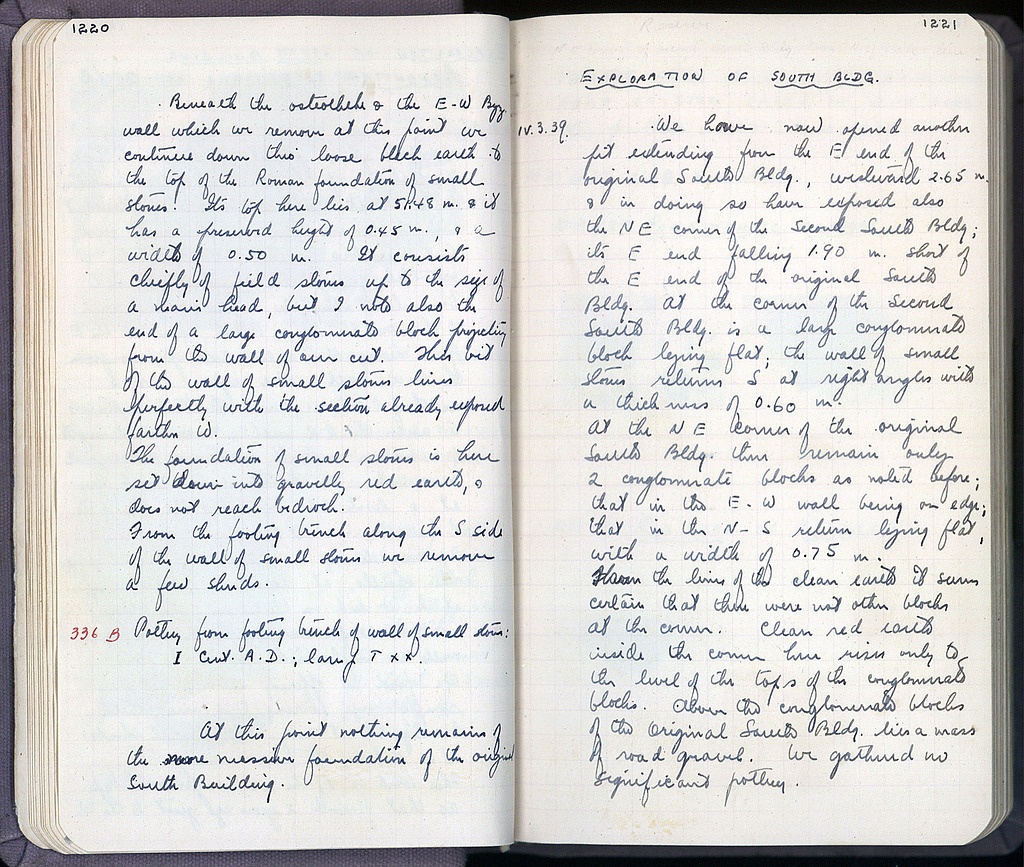 1220
Beneath the osteotheke & the E-W Byz.
wall which we remove at this point we
continue down thro' loose black earth to
the top of the Roman foundation of small
stones. Its top here lies at 51.48 m. & it
has a preserved height of 0.45 m., & a
width of 0.50 m. It consists
chiefly of field stones up to the size of
a man's head, but I note also the
end of a large conglomerate block projecting
from the wall of our cut. This bit
of the wall of small stones lines
perfectly with the section already exposed
farther W.
The foundation of small stones is here
set down into gravelly red earth, &
does not reach bedrock.
From the footing trench along the S side
of the wall of small stones we remove
a few sherds.
336 B Pottery from footing trench of wall of small stones:
I Cent. A.D.;
At this point nothing remains of
the more massive foundation of the original
South Building.
1221
EXPLORATION OF SOUTH BLDG.
IV.3.39. We have now opened another
pit extending from the E end of the
original South Bldg., westward 2.65 m.
& in doing so have exposed also
the NE corner of the Second South Bldg;
its E end falling 1.90 m. short of
the E end of the original South
Bldg. At the corner of the Second
South Bldg. is a large conglomerate
block lying flat; the wall of small
stones returns S at right angles with
a thickness of 0.60 m.
At the NE corner of the original
South Bldg. there remain only
2 conglomerate blocks as noted before;
that in the E-W wall being on edge;
that in the N-S return lying flat,
with a width of 0.75 m.
From the lines of the clean earth it seems
certain that there were not other blocks
at the corner. Clean red earth
inside the corner here rises only to
the level of the tops of the conglomerate
blocks. Above the conglomerate blocks
of the Original South Bldg. lies a mass
of road gravel. We gathered no
significant pottery.